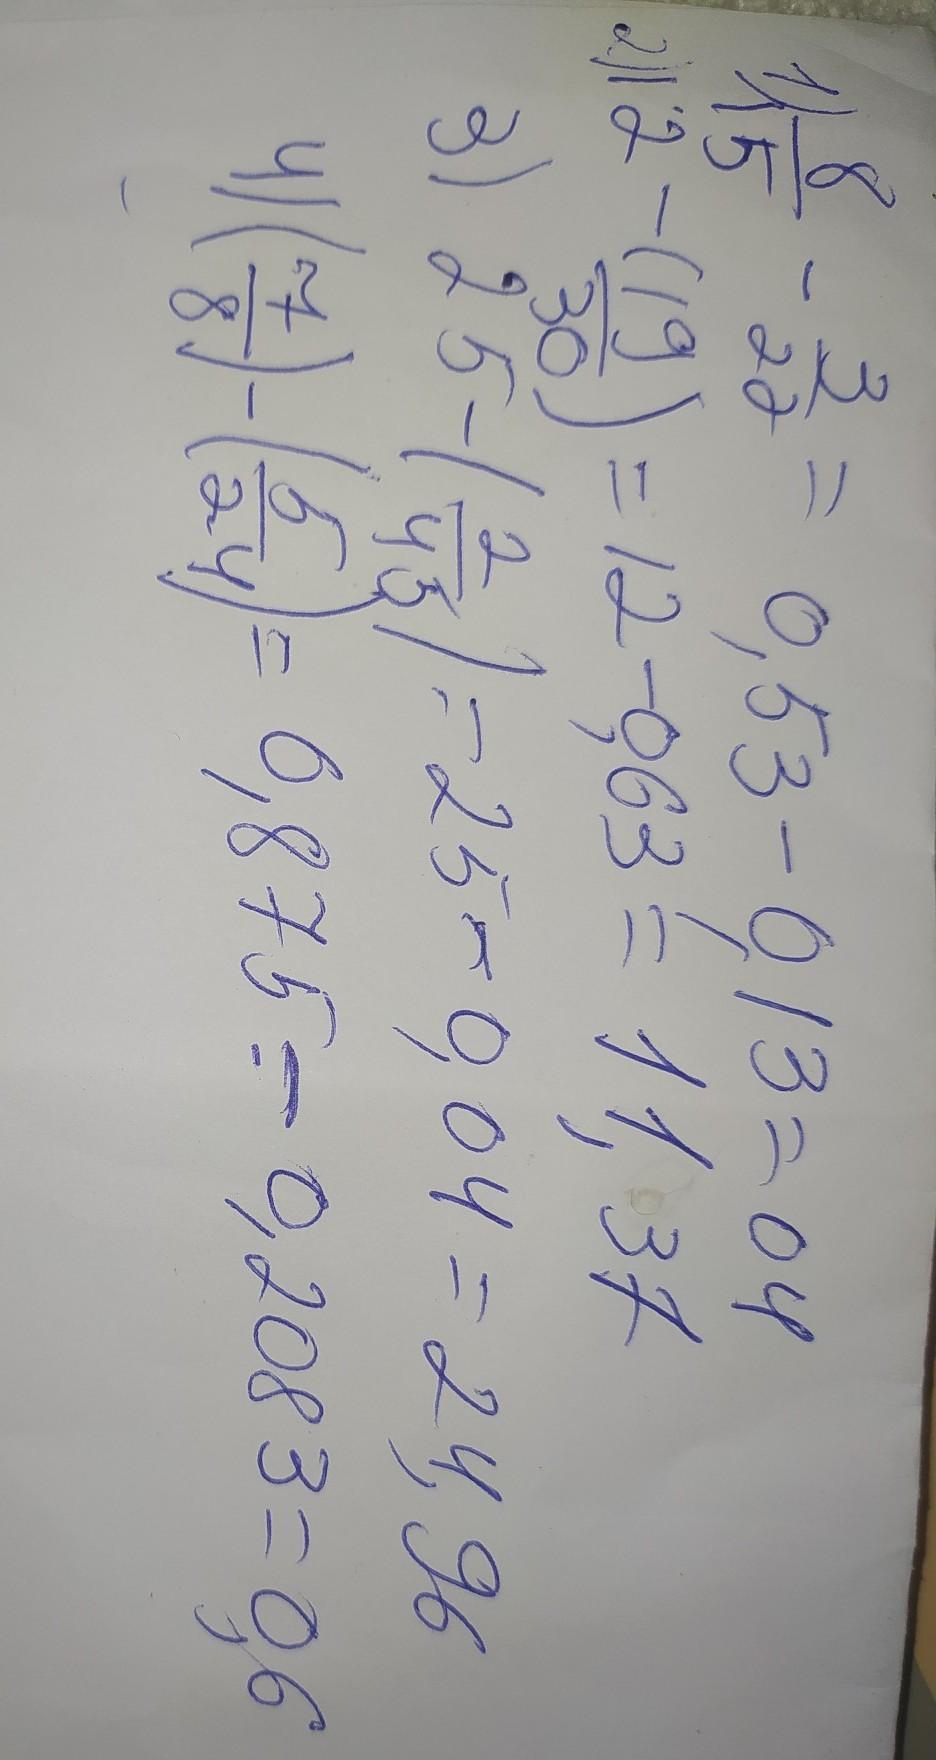 1) 8/15 - 3/22 = 0,53 - 0,13 = 04
2) 12 - (19/30) = 12 - 0,63 = 11,37
3) 25 - (2/45) = 25 - 0,04 = 24,96
4) (7/8) - (5/24) = 0,875 = - 0,2083 = 0,6